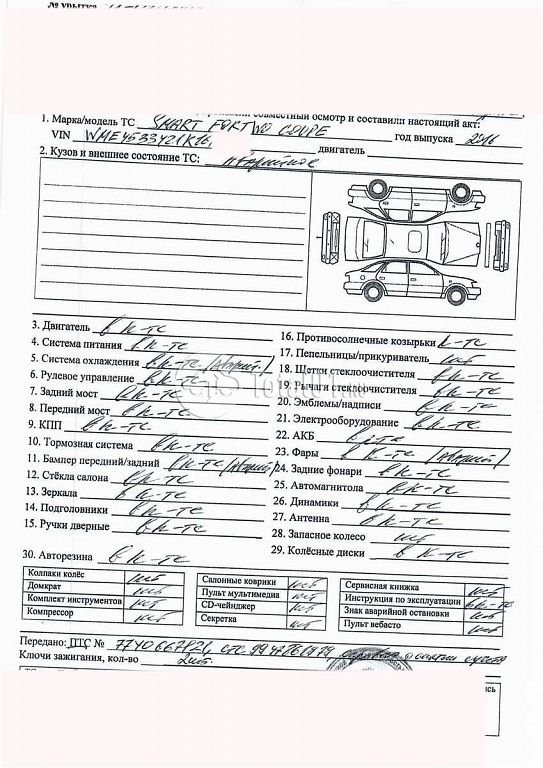 № убытка
совместный осмотр и составили настоящий акт:
1. Марка/модель ТС SMART FORTWO COUPE
VIN WME4533421K16 год выпуска 2016
двигатель
2. Кузов и внешнее состояние ТС: аварийное
3. Двигатель в к-те
4. Система питания в к-те
5. Система охлаждения в к-те (аварий.)
6. Рулевое управление в к-те
7. Задний мост в к-те
8. Передний мост в к-те
9. КПП в к-те
10. Тормозная система в к-те
11. Бампер передний/задний в к-те (аварий)
12. Стёкла салона в к-те
13. Зеркала в к-те
14. Подголовники в к-те
15. Ручки дверные в к-те
16. Противосолнечные козырьки к-те
17. Пепельницы/прикуриватель нет
18. Щетки стеклоочистителя в к-те
19. Рычаги стеклоочистителя в к-те
20. Эмблемы/надписи в к-те
21. Электрооборудование в к-те
22. АКБ в к-те
23. Фары в к-те (аварий)
24. Задние фонари в к-те
25. Автомагнитола в к-те
26. Динамики в к-те
27. Антенна в к-те
28. Запасное колесо нет
29. Колёсные диски в к-те
30. Авторезина в к-те
Колпаки колёс нет
Домкрат нет
Комплект инструментов нет
Компрессор нет
Салонные коврики нет
Пульт мультимедиа нет
CD-чейнджер нет
Секретка нет
Сервисная книжка нет
Инструкция по эксплуатации в к-те
Знак аварийной остановки нет
Пульт вебасто нет
Передано: ПТС №
Ключи зажигания, кол-во 2 шт.